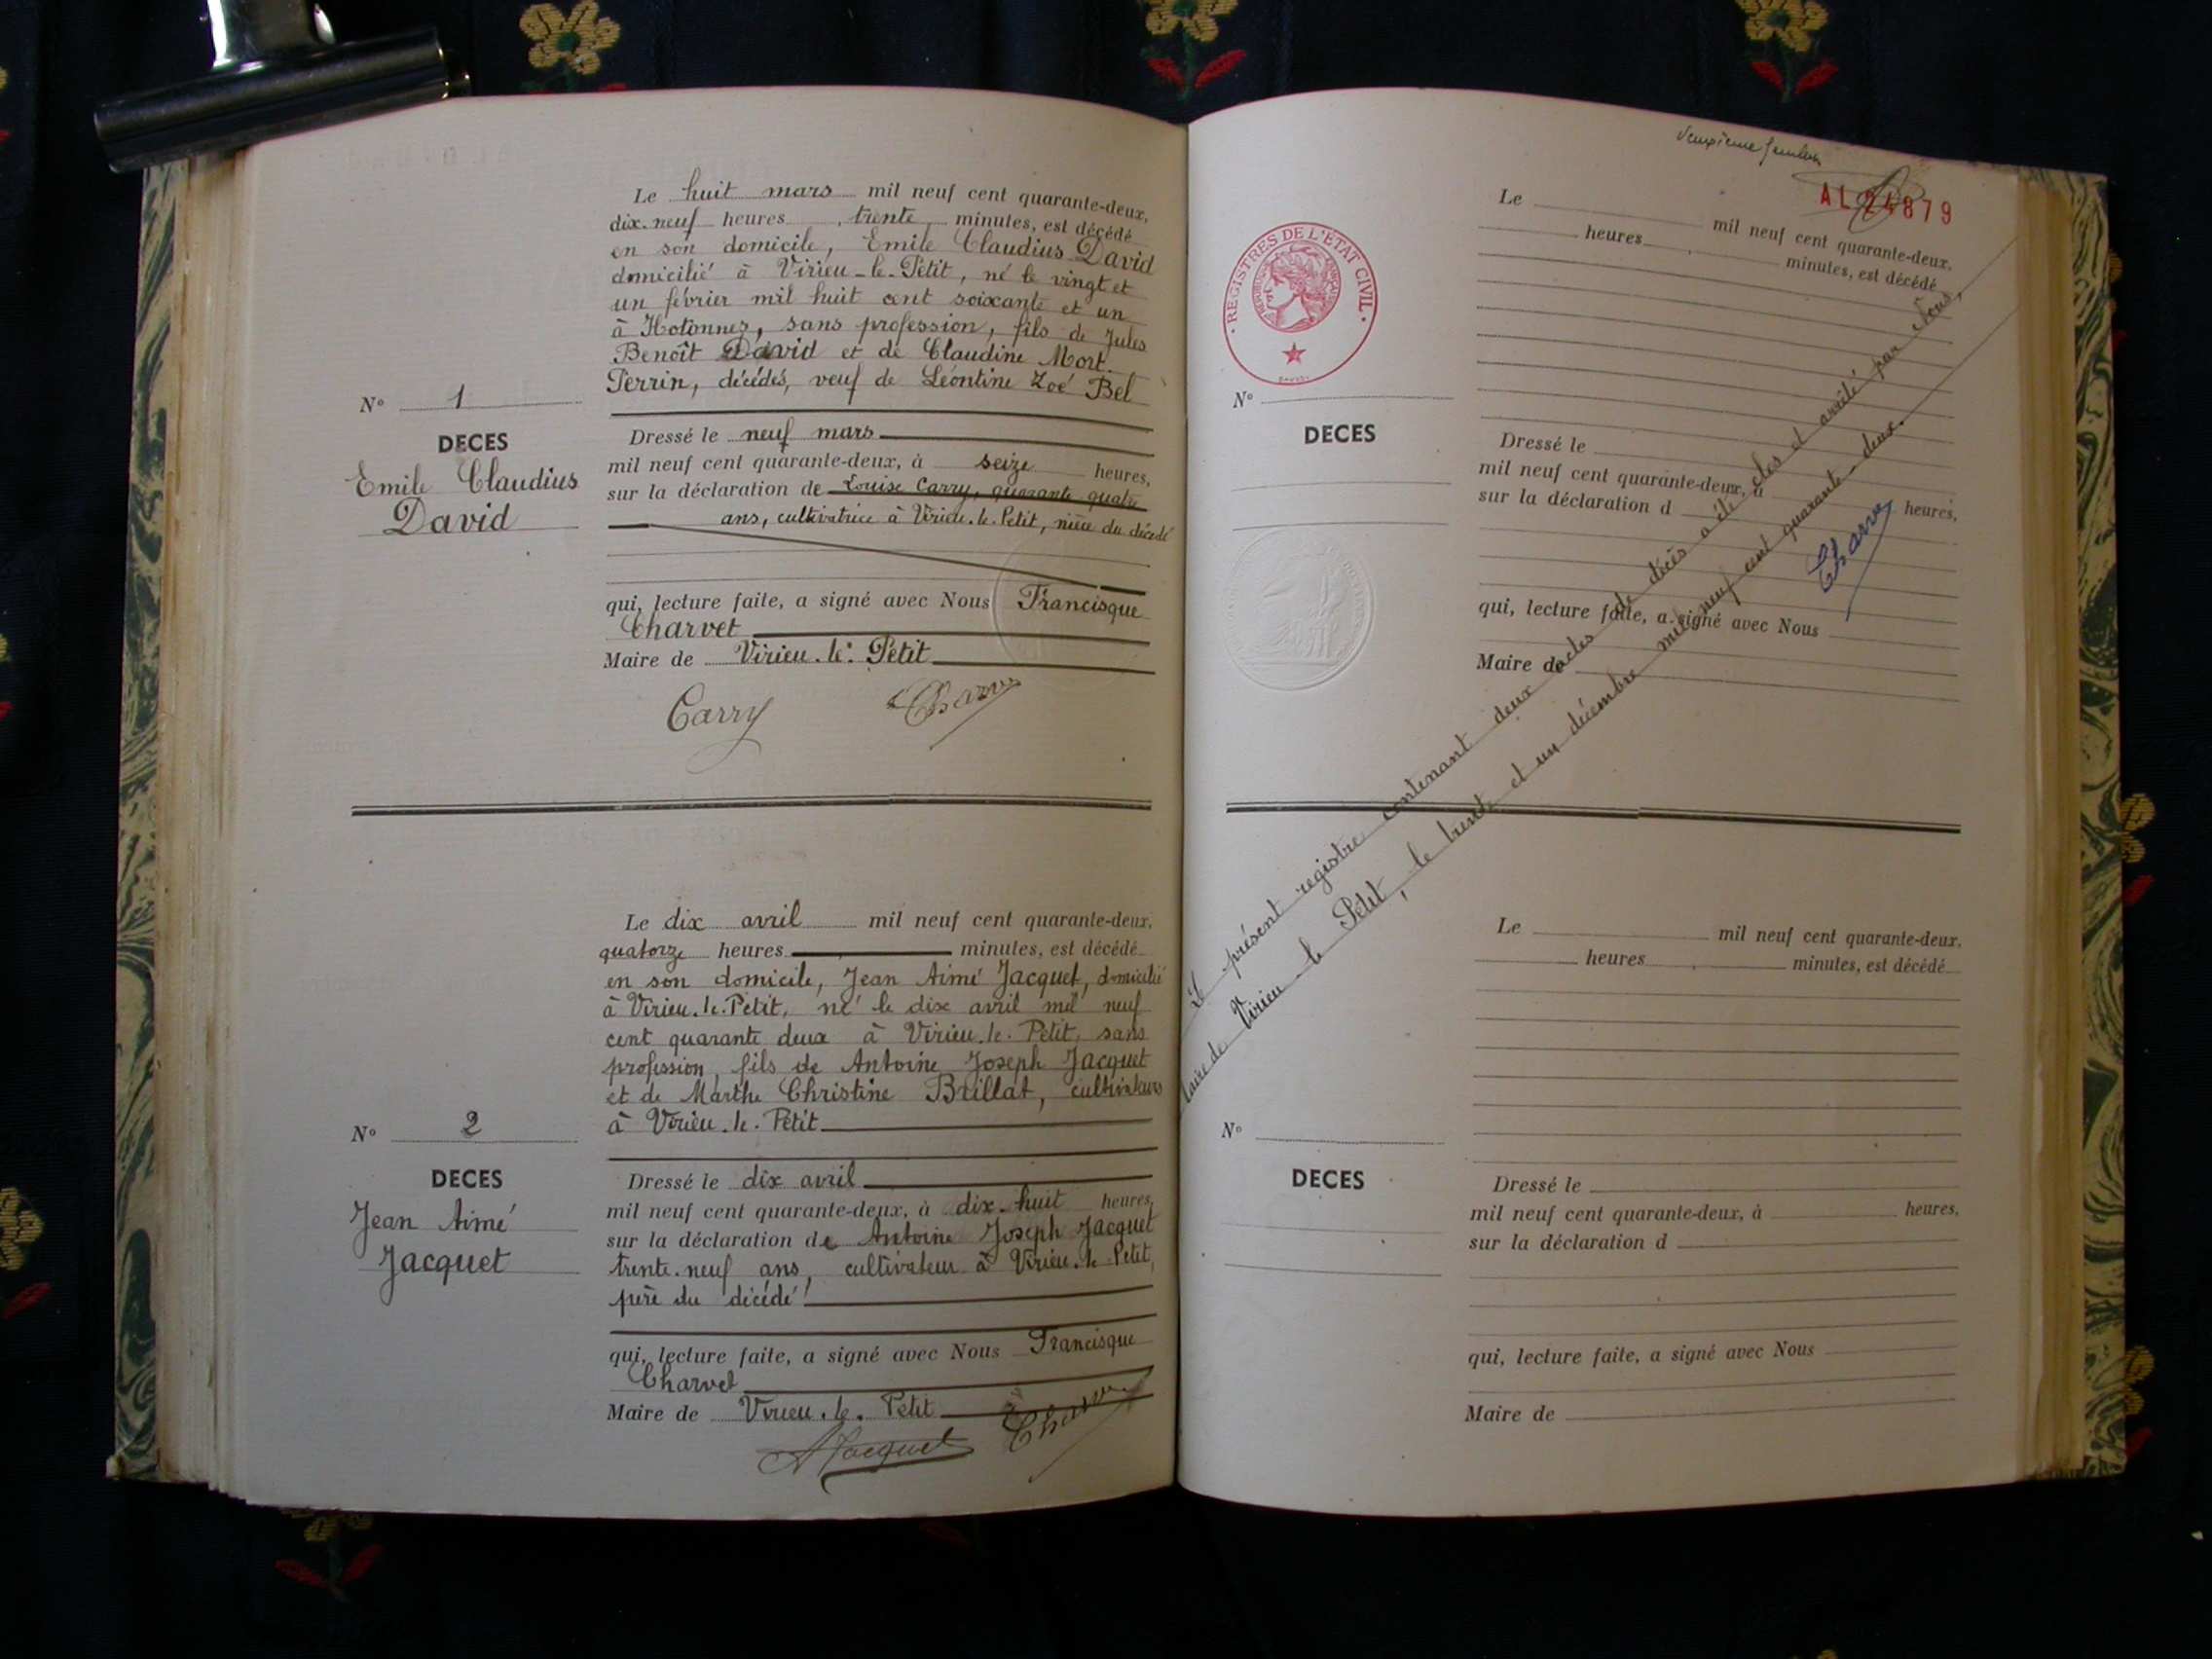 Le huit mars mil neuf cent quarante-deux,
dix-neuf heures, trente minutes, est décédé
en son domicile, Emile Claudius David
domicilié à Virieu-le-Petit, né le vingt et
un février mil huit cent soixante et un
à Hotonnes, sans profession, fils de Jules
Benoît David et de Claudine Mort-
Perrin, décédés, veuf de Léontine Zoé Bel
N° 1
DECES
Emile Claudius
David
Dressé le neuf mars
mil neuf cent quarante-deux, à seize heures,
sur la déclaration de Louise Carry, quarante quatre
ans, cultivatrice à Virieu-le-Petit, nièce du décédé
qui, lecture faite, a signé avec Nous Francisque
Charvet
Maire de Virieu-le-Petit
Carry Charvet
Le dix avril mil neuf cent quarante-deux,
quatorze heures, minutes, est décédé
en son domicile, Jean Aimé Jacquet, domicilié
à Virieu-le-Petit, né le dix avril mil neuf
cent quarante deux à Virieu-le-Petit, sans
profession, fils de Antoine Joseph Jacquet
et de Marthe Christine Brillat, cultivateurs
à Virieu-le-Petit
N° 2
DECES
Jean Aimé
Jacquet
Dressé le dix avril
mil neuf cent quarante-deux, à dix-huit heures,
sur la déclaration de Antoine Joseph Jacquet
trente-neuf ans, cultivateur à Virieu-le-Petit,
père du décédé
qui, lecture faite, a signé avec Nous Francisque
Charvet
Maire de Virieu-le-Petit
AJacquet Charvet
AL 24879
REGISTRES DE L'ÉTAT CIVIL
Le mil neuf cent quarante-deux,
heures minutes, est décédé
N°
DECES
Dressé le
mil neuf cent quarante-deux, à heures,
sur la déclaration d
qui, lecture faite, a signé avec Nous
Maire de
Le présent registre contenant deux actes de décès a été clos et arrêté par Nous,
Maire de Virieu-le-Petit, le trente et un décembre mil neuf cent quarante-deux.
Charvet
Le mil neuf cent quarante-deux,
heures, minutes, est décédé
N°
DECES
Dressé le
mil neuf cent quarante-deux, à heures,
sur la déclaration d
qui, lecture faite, a signé avec Nous
Maire de